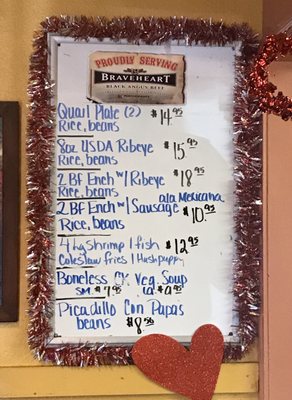 PROUDLY SERVING
BRAVEHEART
BLACK ANGUS BEEF
Quail Plate (2) $14.95
Rice, beans
8oz USDA Ribeye $15.95
Rice, beans
2 BF Ench w/ Ribeye $18.95
Rice, beans
ala Mexicana
2 BF Ench w/ Sausage $10.95
Rice, beans
4 lg Shrimp 1 fish $12.95
Coleslaw fries 1 Hushpuppy
Boneless CK Veg Soup
SM. $7.95 LG $9.95
Picadillo Con Papas
beans $8.56